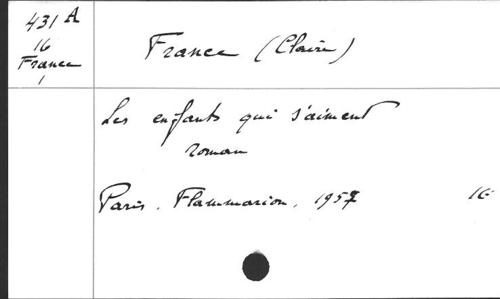 431 A
16
France
1
France (Claire)
Les enfants qui s'aiment
roman
Paris. Flammarion. 1957
16